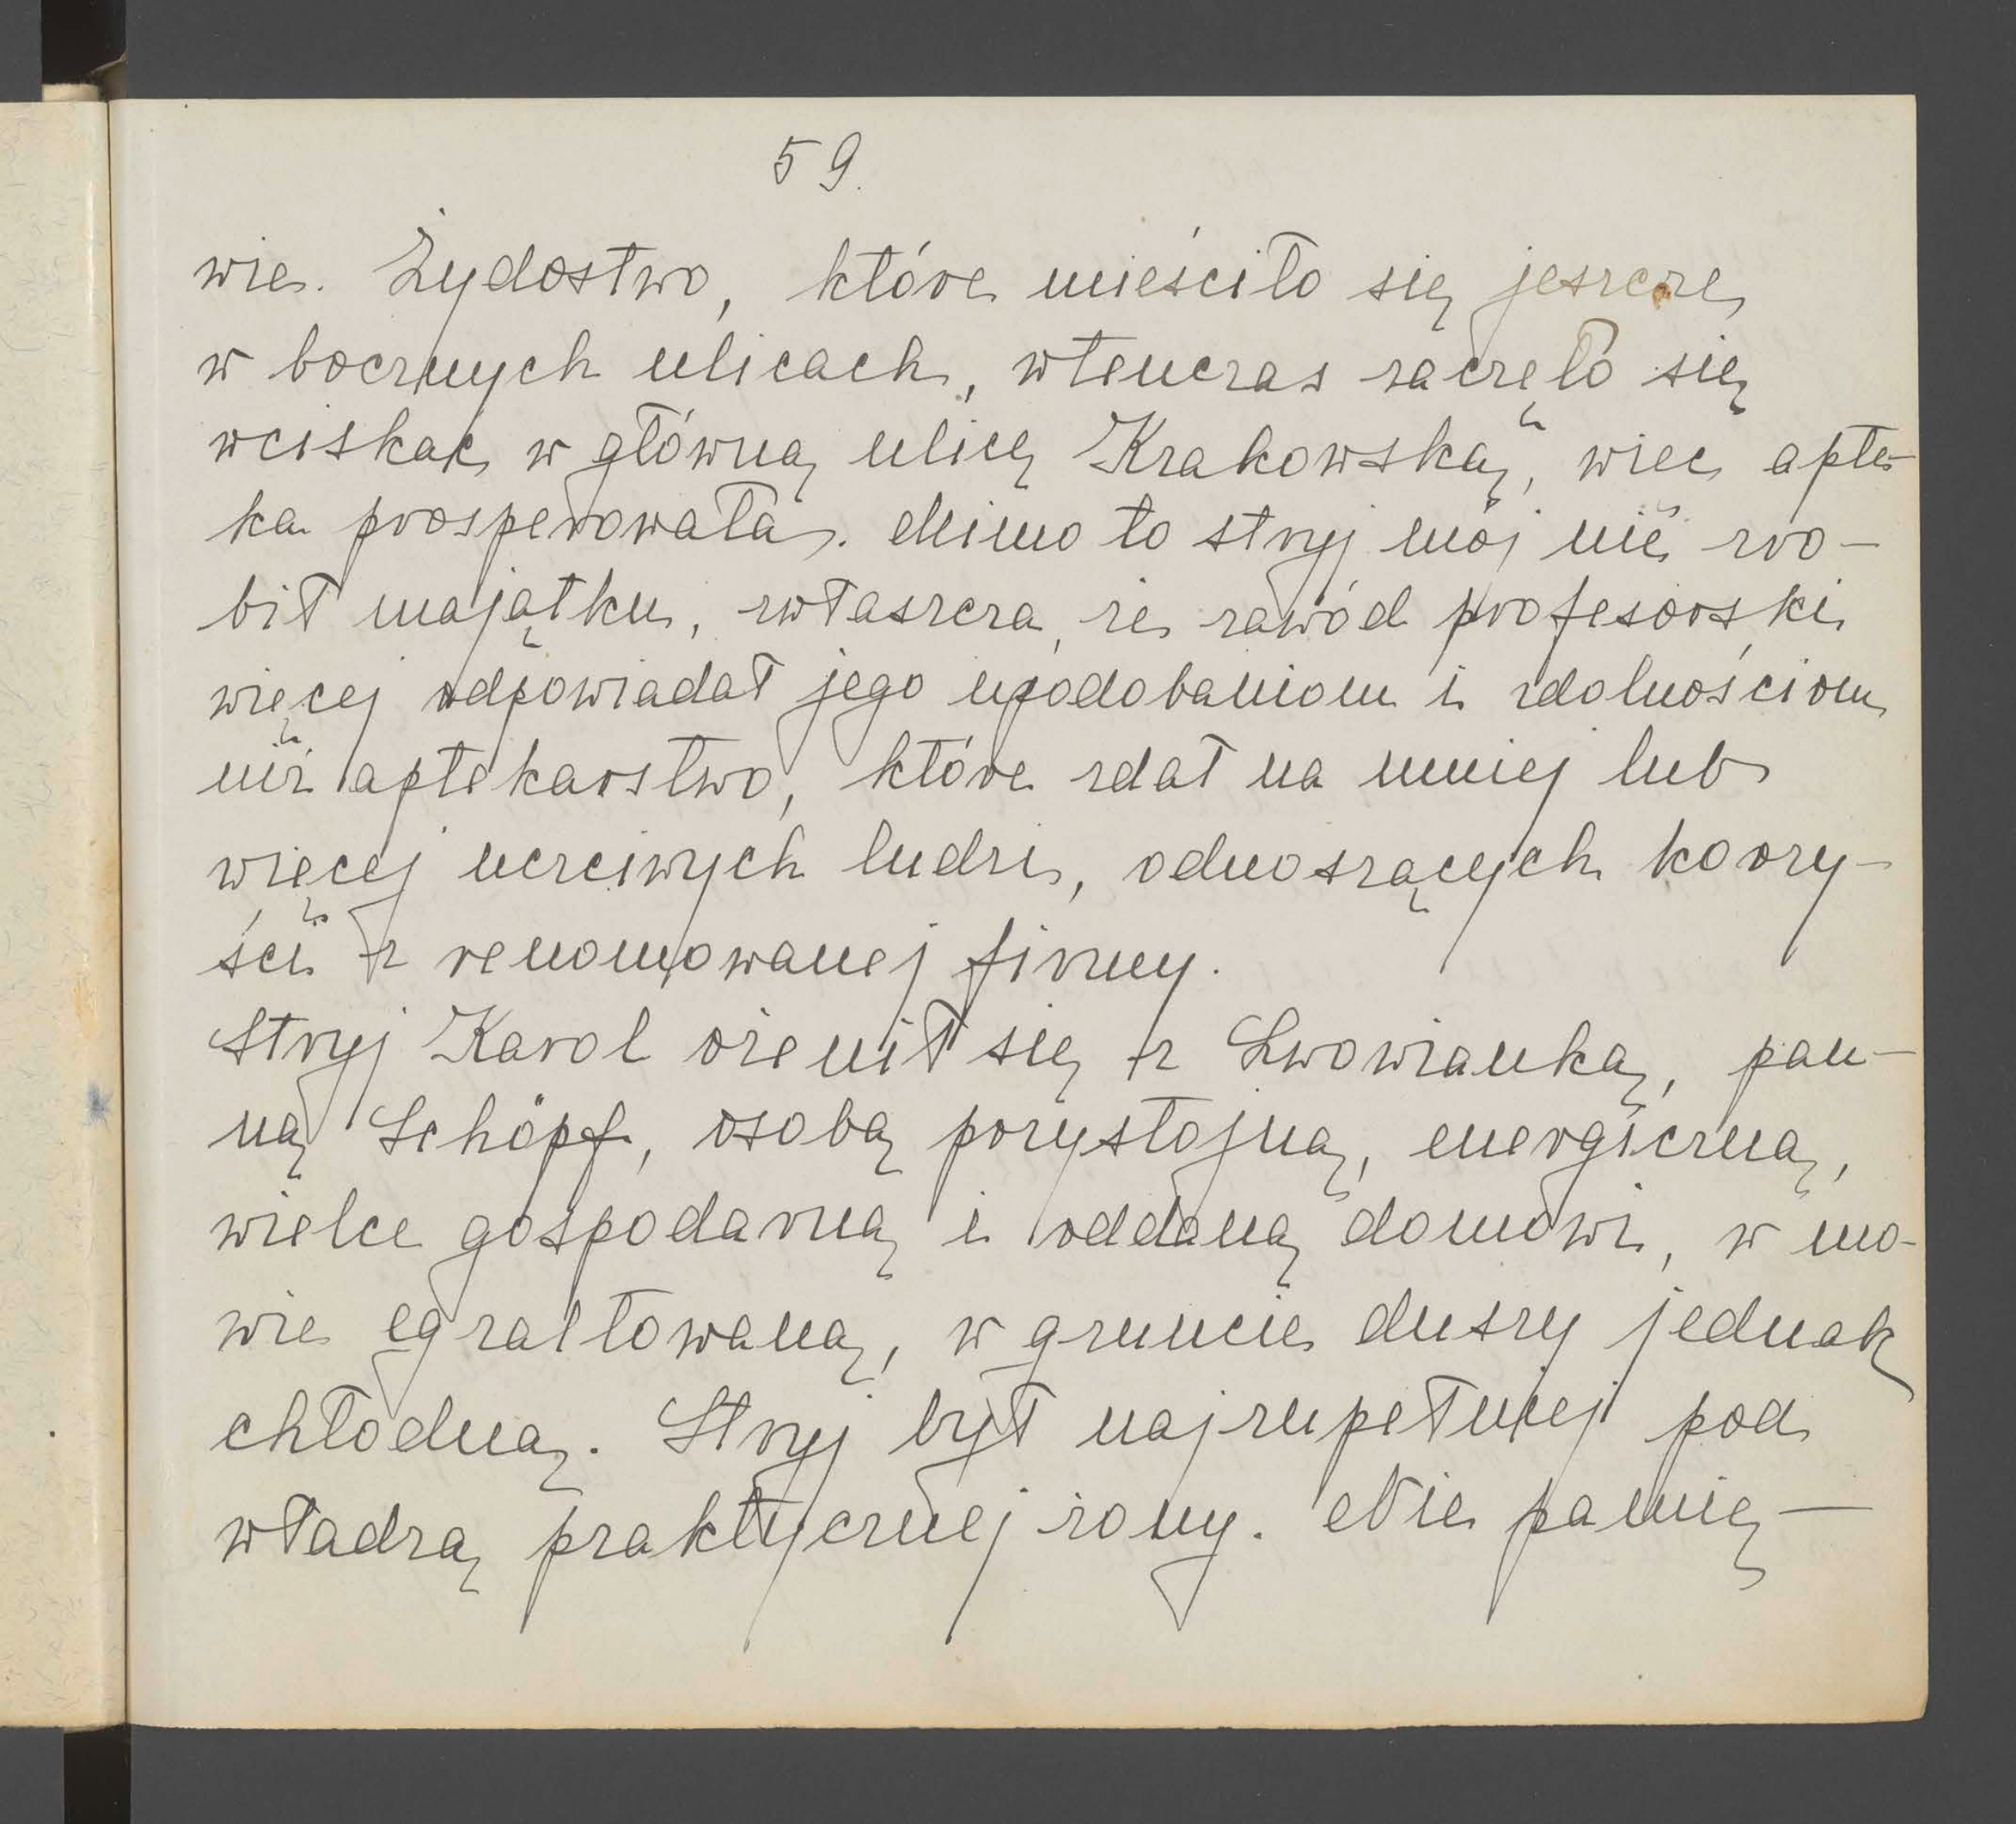 59.
wie. Żydostwo, które mieściło się jeszcze
w bocznych ulicach, wtenczas zaczęło się
wciskać w główną ulicę Krakowską, więc apte-
ka prosperowała. Mimo to stryj mój nie zro-
bił majątku, zwłaszcza, że zawód profesorski
więcej odpowiadał jego upodobaniom i zdolnościom
niż aptekarstwo, które zdał na mniej lub
więcej uczciwych ludzi, odnoszących korzy-
ści z renomowanej firmy.
Stryj Karol ożenił się z Lwowianką, pan-
ną Schöpf, osobą przystojną, energiczną,
wielce gospodarną i oddaną domowi, w mo-
wie egzaltowaną, w gruncie duszy jednak
chłodną. Stryj był najzupełniej pod
władzą praktycznej żony. Nie pamię-